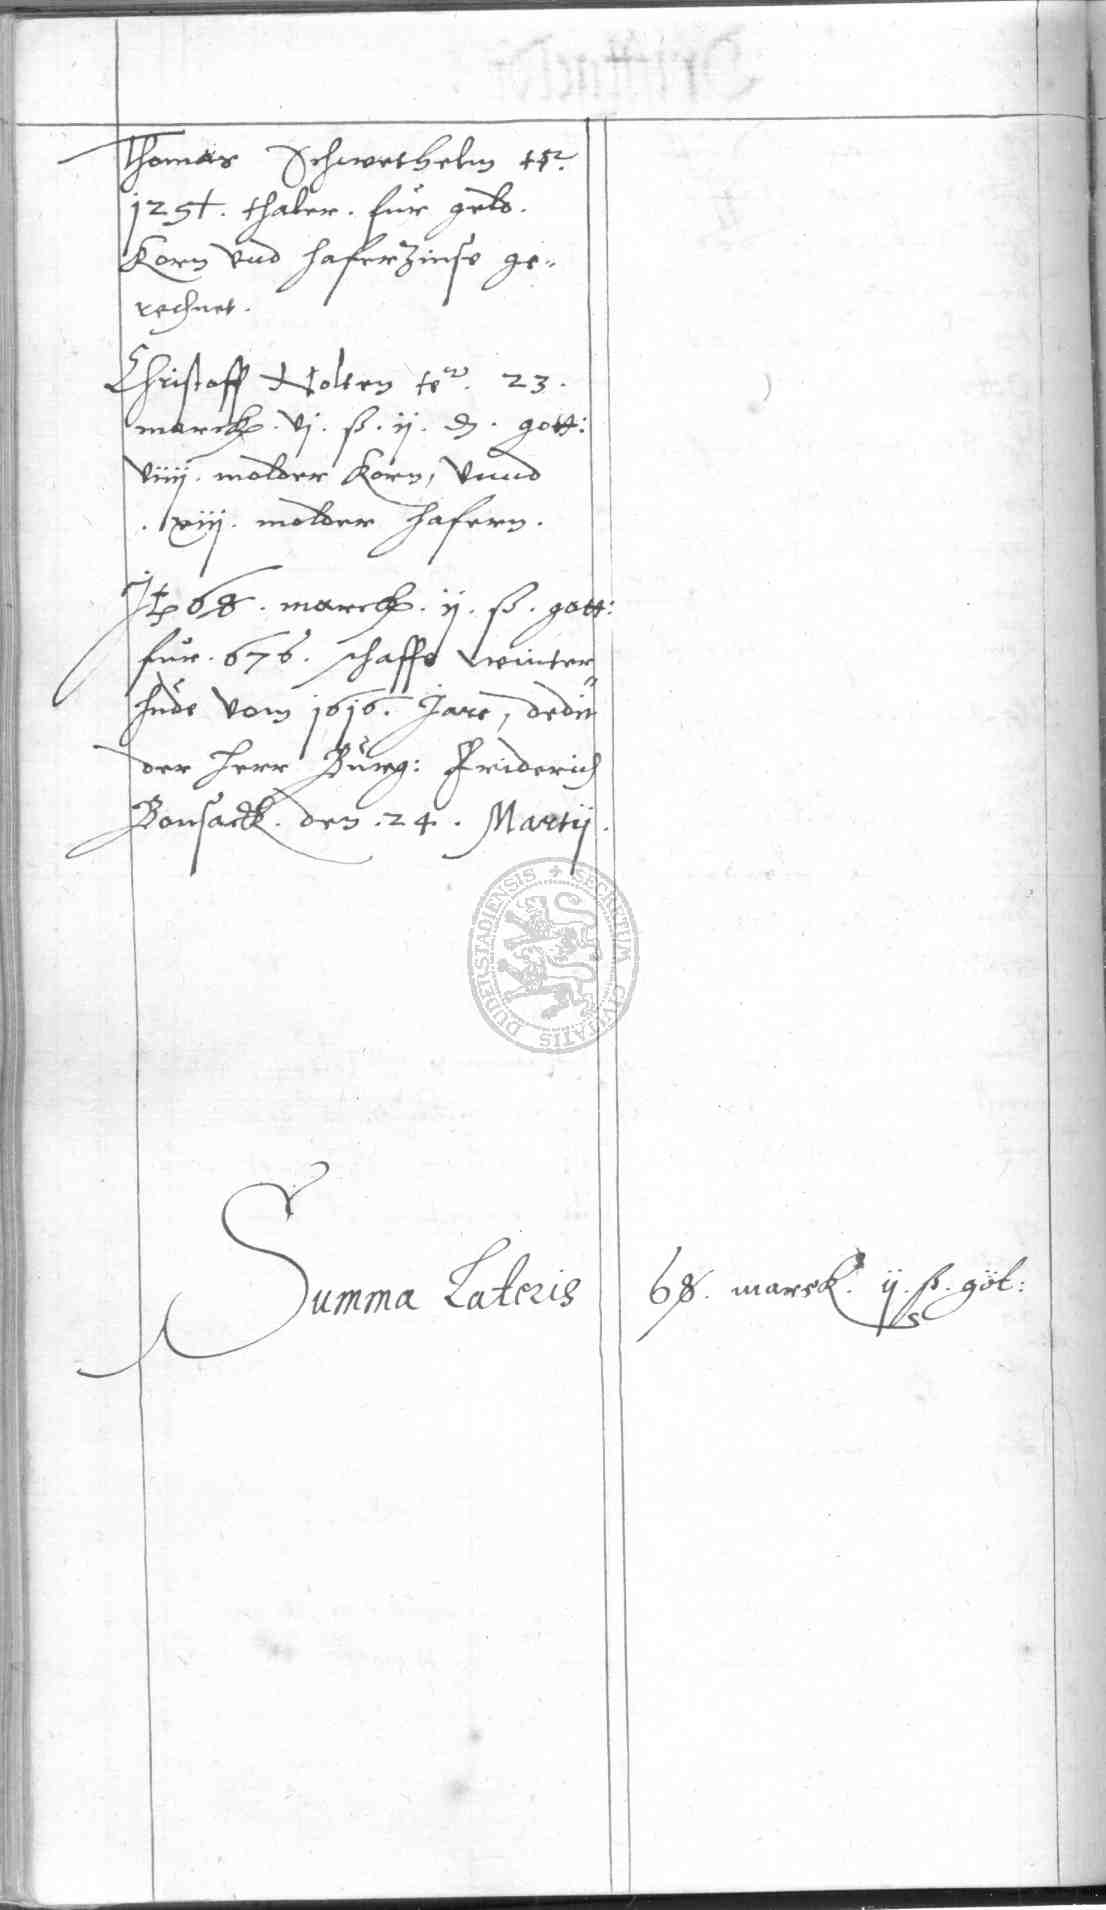 Thomas Schwethelm tr.
125½. thaler. für geld.
Korn vnd haferzinse ge¬
rechnet.
Christoff Nolten tr. 23.
marck. vj. ß. ij. ₰. gott:
viiij. molder Korn, vnnd
. xiij. molder hafern.
It 68. marck. ij. ß. gott:
für. 676. schaffe winter
hude vom 1616. Jare, dedit
der Herr Bürg: Friderich
Bonsack. den .24. Martij.
SECRETUM CIVITATIS DUDERSTADIENSIS
Summa Lateris 68. marck. ij. ß. gött: